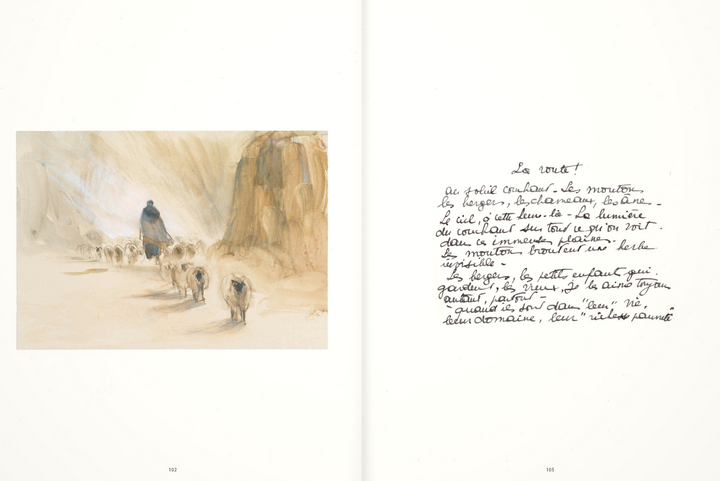 La route !
au soleil couchant - Les moutons
les bergers, les chameaux, les âne -
Le ciel, à cette heure-là - La lumière
du couchant sur tout ce qu'on voit.
dans ces immenses plaines.
les moutons broutent une herbe
invisible -
Les bergers, les petits enfants qui
gardent, les vieux, Je les aime toujours
autant, partout -
- quand ils sont dans "leur" vie,
leur domaine, leur "richesse pauvreté"
102
103